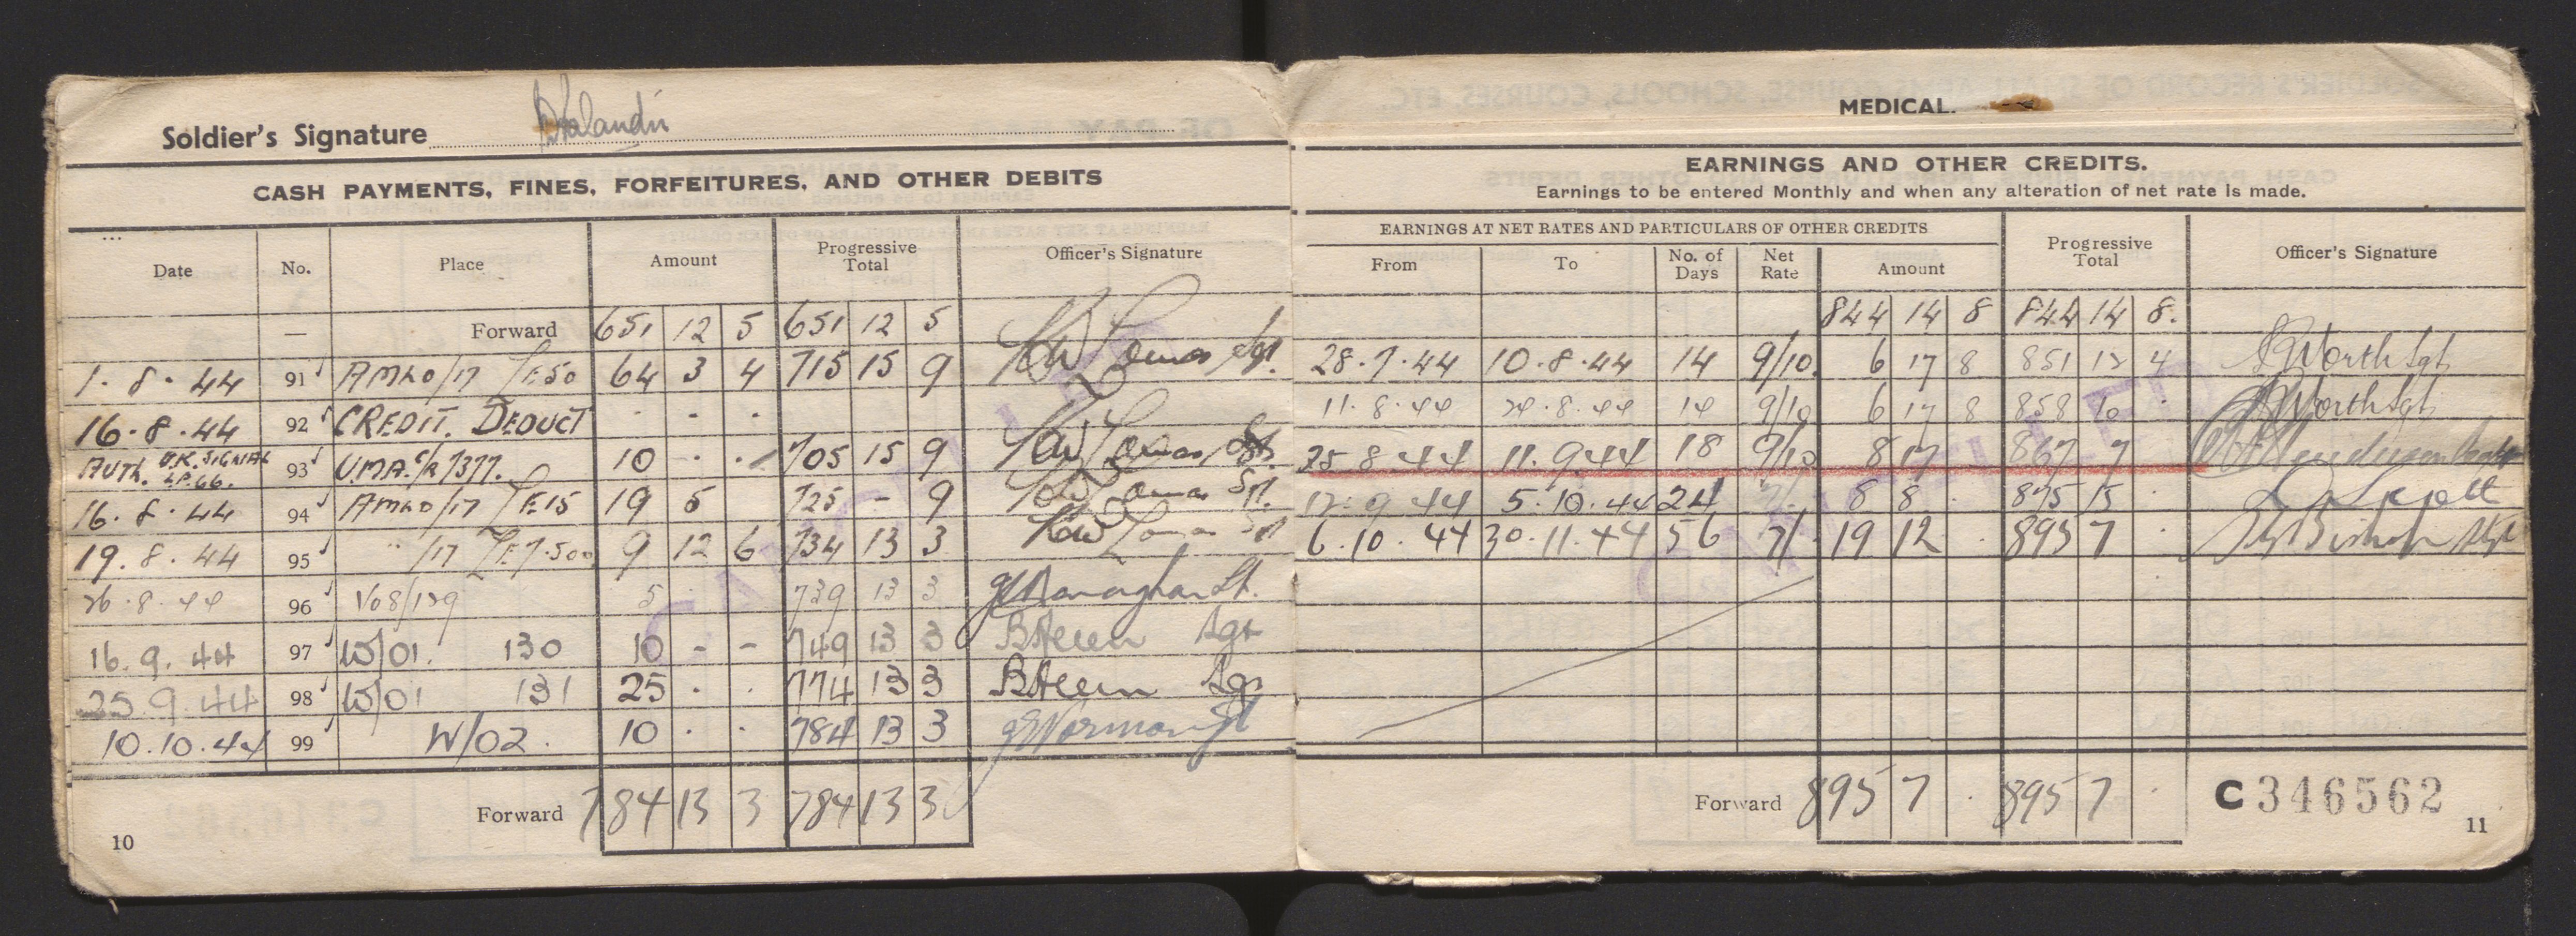 Soldier's Signature
CASH PAYMENTS, FINES, FORFEITURES, AND OTHER DEBITS
Date No. Place Amount Progressive Total Officer's Signature
— Forward 651 12 5 651 12 5
1.8.44 91 AMLO/17 £E50 64 3 4 715 15 9 Sgt.
16.8.44 92 CREDIT. DEDUCT . . .
AUTH. U.K. SIGNAL LP.66. 93 10 . . 705 15 9
16.8.44 94 AMLO/17 £E15 19 5 725 – 9
19.8.44 95 " /17 £E7.500 9 12 6 734 13 3
26.8.44 96 V08/129 5 739 13 3 Lt.
16.9.44 97 W/01. 130 10 – – 749 13 3 Sgt
25.9.44 98 W/01 131 25 . . 774 13 3
10.10.44 99 W/02. 10 . . 784 13 3
Forward 784 13 3 784 13 3
10
MEDICAL.
EARNINGS AND OTHER CREDITS.
Earnings to be entered Monthly and when any alteration of net rate is made.
EARNINGS AT NET RATES AND PARTICULARS OF OTHER CREDITS
From To No. of Days Net Rate Amount Progressive Total Officer's Signature
844 14 8 844 14 8.
28.7.44 10.8.44 14 9/10 6 17 8 851 12 4 Worth Sgt
11.8.44 24.8.44 14 9/10 6 17 8 858 10 . Worth Sgt
25.8.44 11.9.44 18 9/10 8 17 867 7
12.9.44 5.10.44 24 7/- 8 8 . 875 15 .
6.10.44 30.11.44 56 7/- 19 12 . 895 7 . Bishop
Forward 895 7 . 895 7 .
C346562
11
CANCELLED